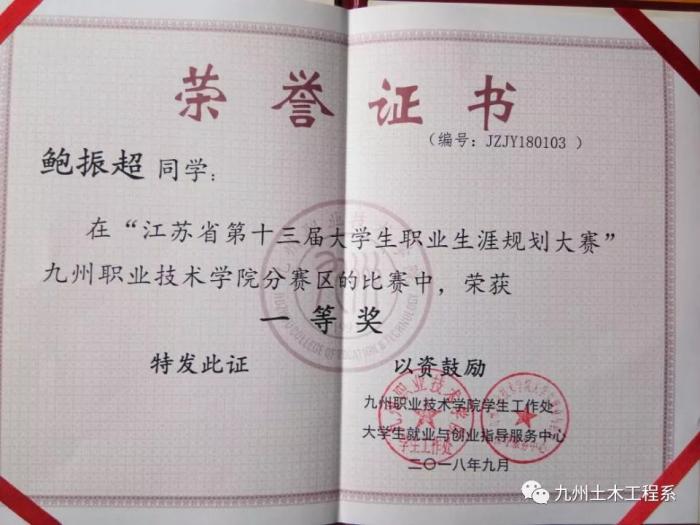 荣誉证书
（编号：JZJY180103 ）
鲍振超 同学：
在“江苏省第十三届大学生职业生涯规划大赛”
九州职业技术学院分赛区的比赛中，荣获
一等奖
特发此证 以资鼓励
九州职业技术学院学生工作处
大学生就业与创业指导服务中心
二〇一八年九月
学生工作处
九州土木工程系